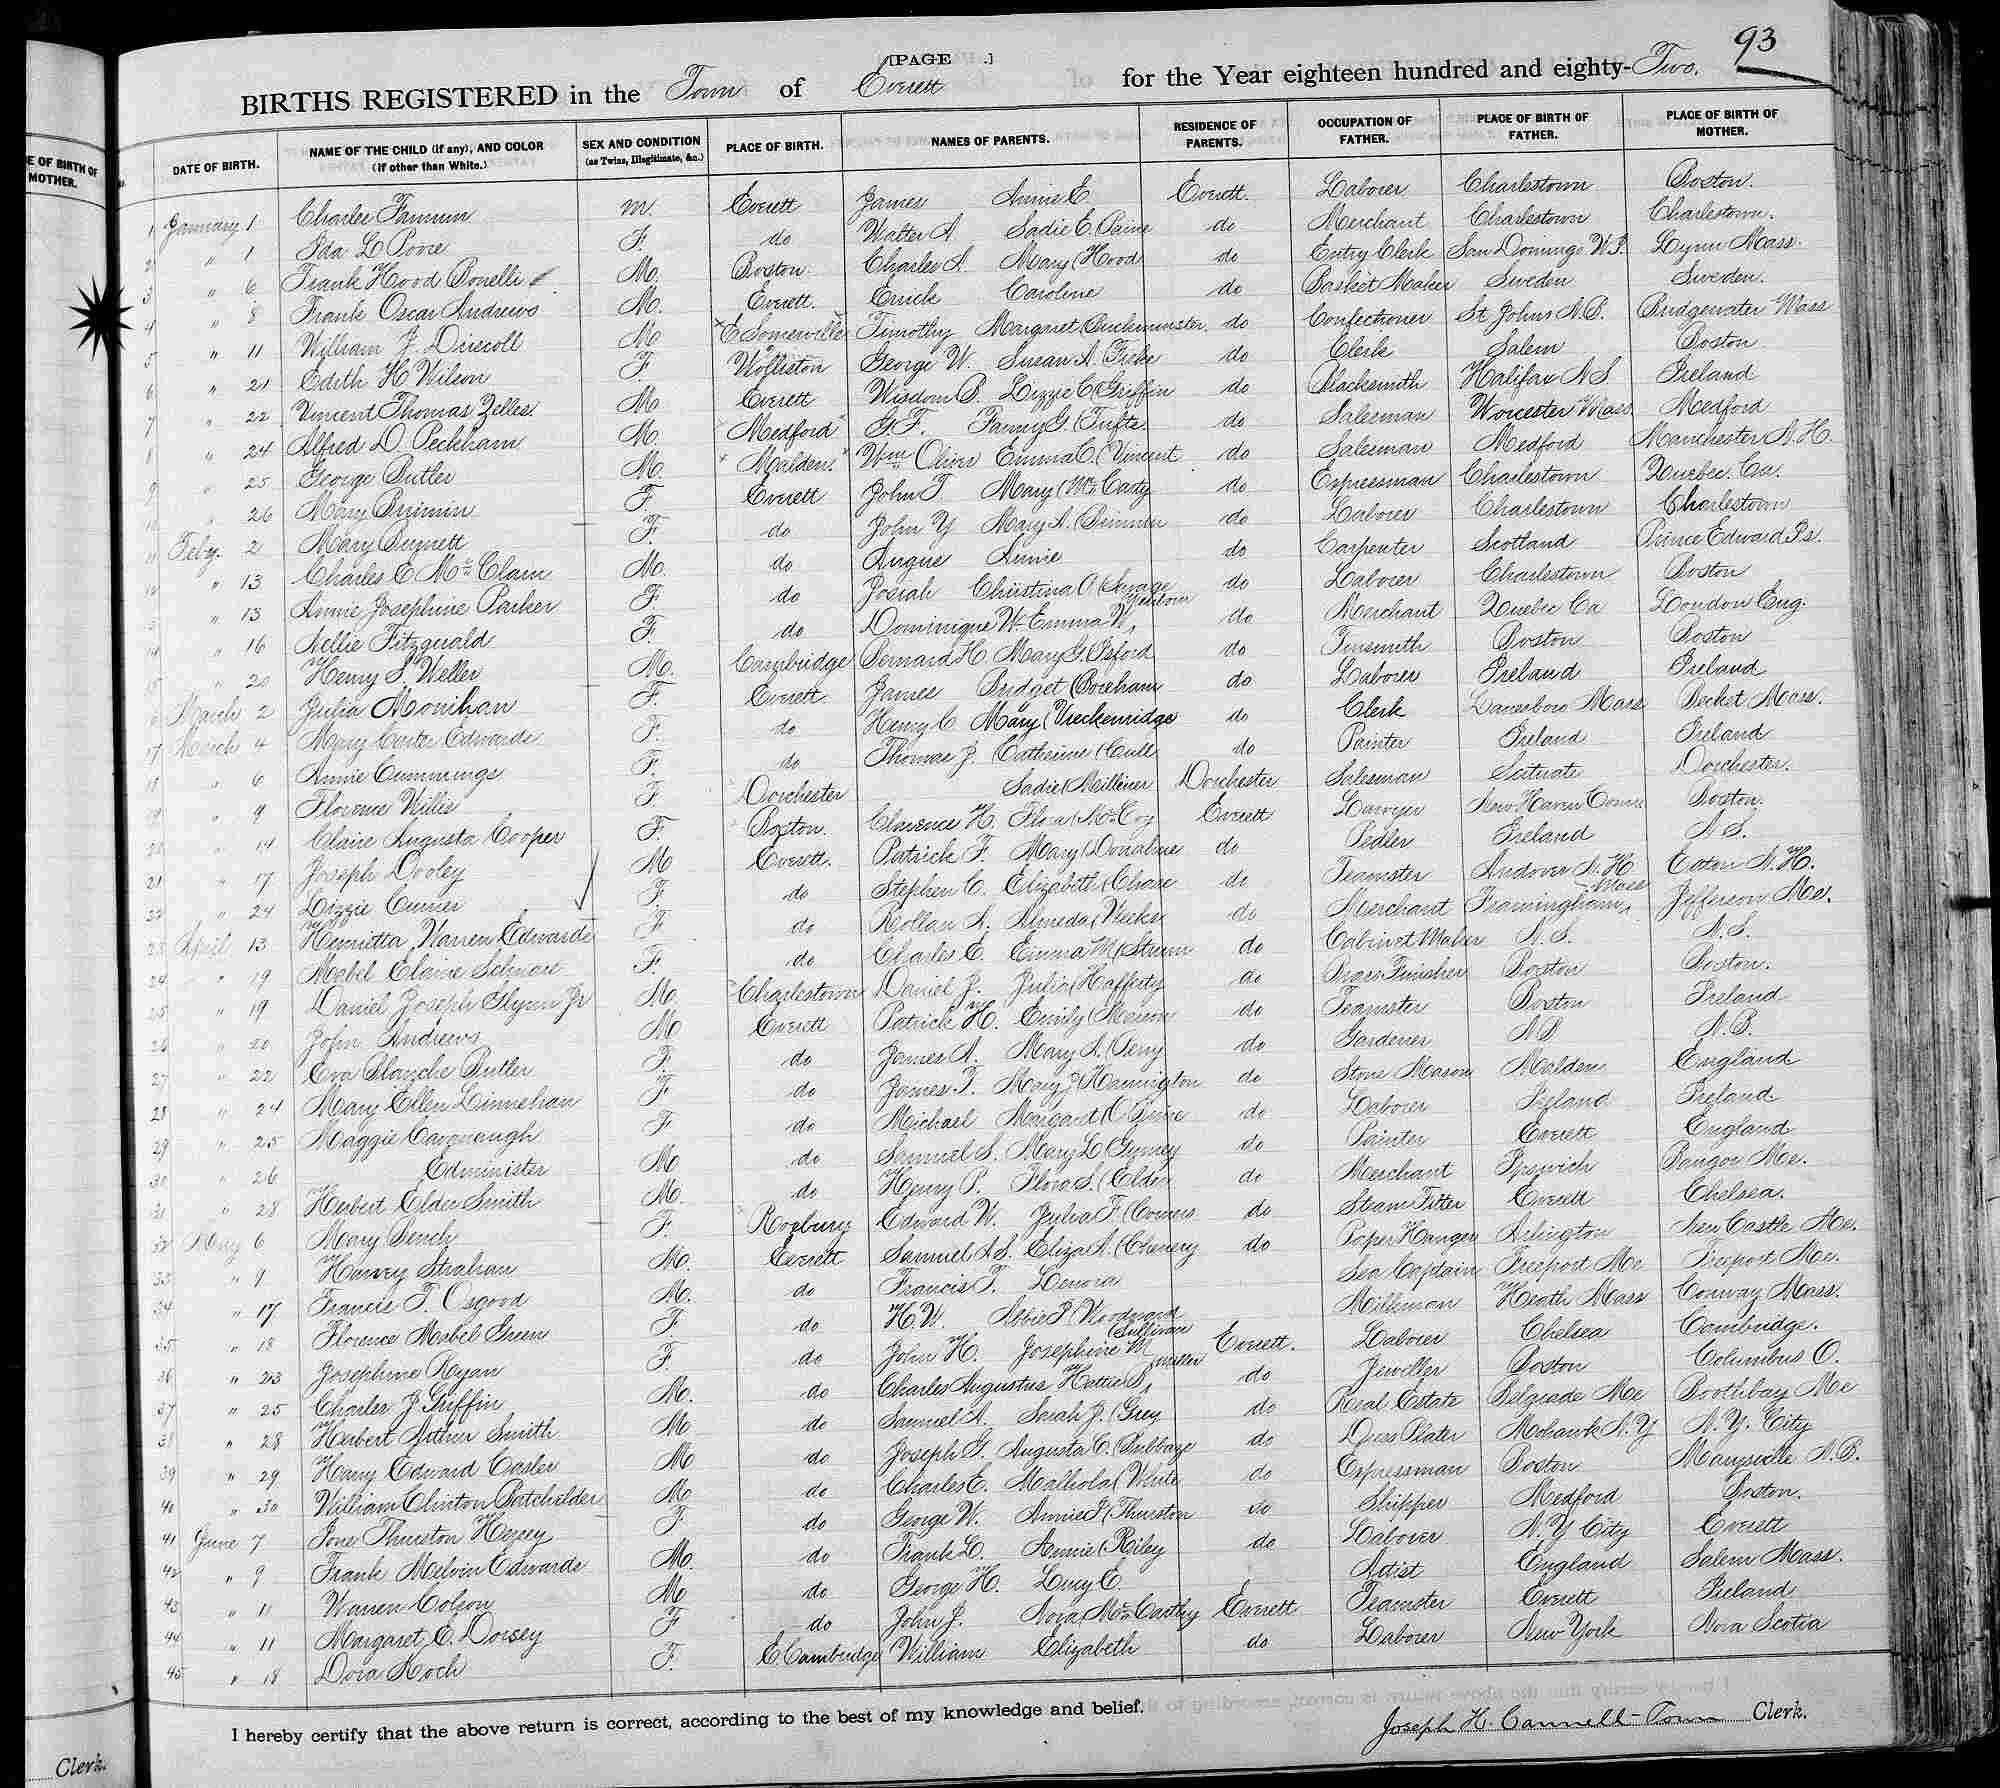 93
[PAGE .]
BIRTHS REGISTERED in the Town of Everett for the Year eighteen hundred and eighty-Two.
E OF BIRTH OF MOTHER.
No. DATE OF BIRTH. NAME OF THE CHILD (if any), AND COLOR (if other than White.) SEX AND CONDITION (as Twins, Illegitimate, &c.) PLACE OF BIRTH. NAMES OF PARENTS. RESIDENCE OF PARENTS. OCCUPATION OF FATHER. PLACE OF BIRTH OF FATHER. PLACE OF BIRTH OF MOTHER.
1 January 1 Charles Fannun M. Everett James Annie E. Everett. Laborer Charlestown Boston.
2 " 1 Ida L Poore F. do Walter A. Sadie E. Paine do Merchant Charlestown Charlestown.
3 " 6 Frank Hood Bonelli M. Boston Charles A. Mary (Hood do Entry Clerk San Domingo W.I. Lynn Mass.
4 " 8 Frank Oscar Andrews M. Everett. Erick Caroline do Basket Maker Sweden Sweden.
5 " 11 William J. Driscoll M E Somerville Timothy Margaret (Buckminster do Confectioner St Johns N.B. Bridgewater Mass
6 " 21 Edith H. Wilson F. Wolliston George W. Susan A. do Clerk Salem Boston
7 " 22 Vincent Thomas Zelles M. Everett Wisdom B. Lizzie C. (Griffin do Blacksmith Halifax N S Ireland
8 " 24 Alfred D. Peckham M. "Medford" G.F. Fanny G. (Tufts. do Salesman Worcester Mass Medford
9 " 25 George Butler M. "Malden." Wm Oliver Emma C. (Vincent do Salesman Medford Manchester N.H.
10 " 26 Mary Brimin F. Everett John T. Mary (Mc Carty do Expressman Charlestown Quebec. Ca.
11 Feby. 2 Mary Burnett F. do John Y Mary A. (Brimin do Laborer Charlestown Charlestown
12 " 13 Charles E McClain M. do Angus Annie do Carpenter Scotland Prince Edward Is.
13 " 13 Annie Josephine Parker F. do Josiah Christina O (Savage do Laborer Charlestown Boston
14 " 16 Nellie Fitzgerald F. do Dominique W. Emma W. do Merchant Quebec Ca London Eng.
15 " 20 Henry S. Weller M. Cambridge Bernard H. Mary G. do Tinsmith Boston Boston
16 March 2 Julia Monihan F. Everett James Bridget (Boreham do Laborer Ireland Ireland
17 March 4 Mary Carter Edwards F. do Henry C. Mary (Breckenridge do Clerk Lanesboro Mass Becket Mass.
18 " 6 Annie Cummings F. do Thomas J. Catherine (Cull do Painter Ireland Ireland
19 " 9 Florence Willis F Dorchester Sadie (Milliner Dorchester Salesman Scituate Dorchester.
20 " 14 Claire Augusta Cooper F. Boston. Clarence H. Flora (McCoy Everett Lawyer New Haven Conn Boston.
21 " 17 Joseph Dooley M Everett. Patrick F. Mary (Donahue do Pedler Ireland N.S.
22 " 24 Lizzie Currier F. do Stephen C. Elizabeth (Chase do Teamster Andover N.H. Eaton N.H.
23 April 13 Henrietta Warren Edwards F do Rollan A. Almeda (Weeks do Merchant Framingham, Mass Jefferson Me.
24 " 19 Mabel Elaine F. do Charles E. Emma M (Strum do Cabinet Maker N.S. N.S.
25 " 19 Daniel Joseph Flynn Jr M. Charlestown Daniel J. Julia (Hafferty do Brass Finisher Boston Boston.
26 " 20 John Andrews M Everett Patrick H. Emily (Marion do Teamster Boston Ireland
27 " 22 Eva Blanche Butler F. do James A. Mary A. (Perry do Gardener N B N.B.
28 " 24 Mary Ellen Linnehan F do James T. Mary J (Harrington do Stone Mason Malden England
29 " 25 Maggie Cavenaugh F do Michael Margaret (O'Brine do Laborer Ireland Ireland.
30 " 26 Edminister M do Samuel S. Mary L. do Painter Everett England
31 " 28 Herbert Elder Smith M. do Henry P. Flora S. (Elder do Merchant Ipswich Bangor Me.
32 May 6 Mary Bench F. Roxbury Edward W. Julia F. (Conners do Steam Fitter Everett Chelsea.
33 " 9 Harvey Strahan M. Everett Samuel A.S. Eliza A. (Chenery do Paper Hanger Arlington New Castle Me.
34 " 17 Francis T. Osgood M. do Francis T. Lenora Sea Captain Freeport Me Freeport Me.
35 " 18 Florence Mabel Green F. do H.W. Abbie P (Woodward Milliman Heath Mass Conway Mass.
36 " 23 Josephine Ryan F. do John H. Josephine W (Sullivan Everett. Laborer Chelsea Cambridge.
37 " 25 Charles J Griffin M. do Charles Augustus Hattie S, Miller do Jewiller Boston Columbus O.
38 " 28 Herbert Arthur Smith M do Samuel A. Sarah J. (Grey do Real Estate Belgrade Me Boothbay Me
39 " 29 Harry Edward Casler M do Joseph G. Augusta C. do Dress Plater Mohawk N.Y N.Y. City
40 " 30 William Clinton Batchilder M. do Charles E. (White do Expressman Boston Marysville N.B.
41 June 7 Ione Thurston Hersey F. do George W. Annie P (Thurston do Shipper Medford Boston.
42 " 9 Frank Melvin Edwards M. do Frank L. Annie (Riley do Laborer N.Y City Everett
43 " 11 Warren Colson M do George H. Lucy E. Artist England Salem Mass.
44 " 11 Margaret E. Dorsey F do John J. Nora (Mc Carthy Everett Teamster Everett Ireland
45 " 18 Dora Koch F. E Cambridge William Elizabeth do Laborer New York Nova Scotia
I hereby certify that the above return is correct, according to the best of my knowledge and belief.
Joseph H. Cannell - Town Clerk.
Clerk.